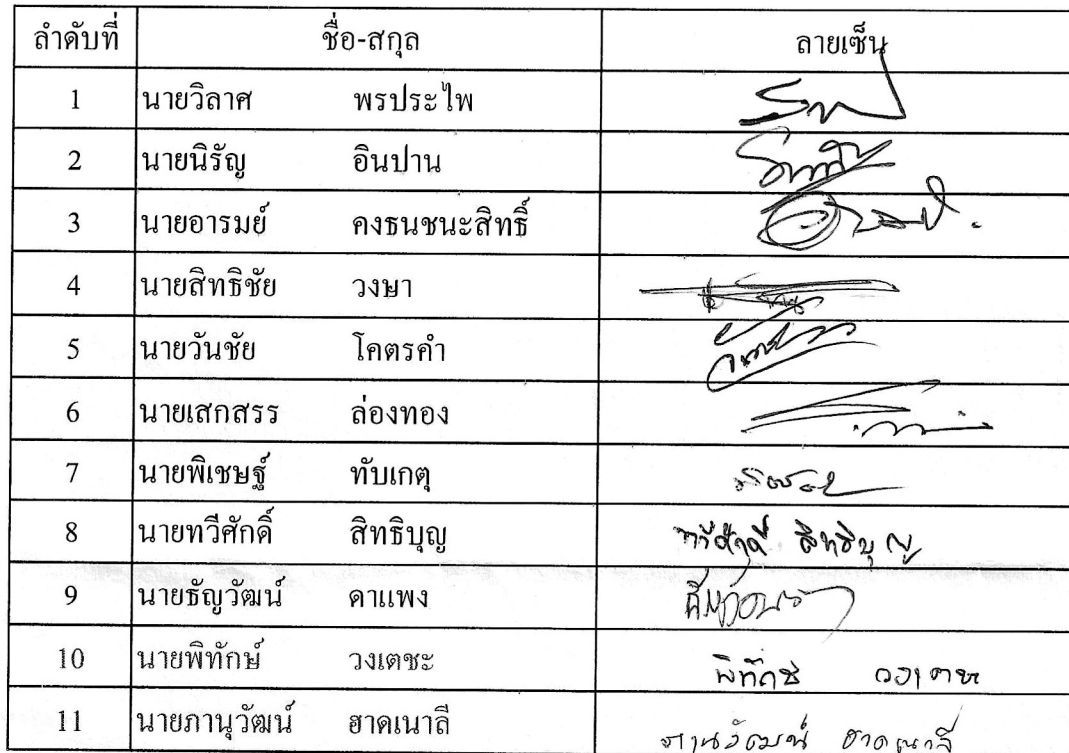 ลำดับที่ ชื่อ-สกุล ลายเซ็น
1 นายวิลาศ พรประไพ
2 นายนิรัญ อินปาน
3 นายอารมย์ คงธนชนะสิทธิ์
4 นายสิทธิชัย วงษา
5 นายวันชัย โคตรคำ
6 นายเสกสรร ล่องทอง
7 นายพิเชษฐ์ ทับเกตุ
8 นายทวีศักดิ์ สิทธิบุญ ทวีศักดิ์ สิทธิบุญ
9 นายธัญวัฒน์ คาแพง
10 นายพิทักษ์ วงเตชะ พิทักษ์
11 นายภานุวัฒน์ ฮาดเนาลี ภานุวัฒน์ ฮาดเนาลี